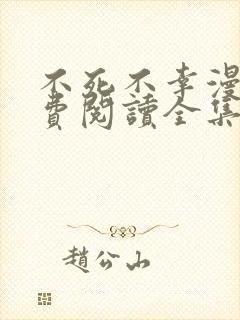 不死不幸漫
費閱讀全集
趙公山